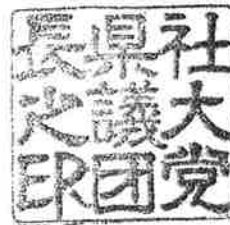 社大党
県議団
長之印